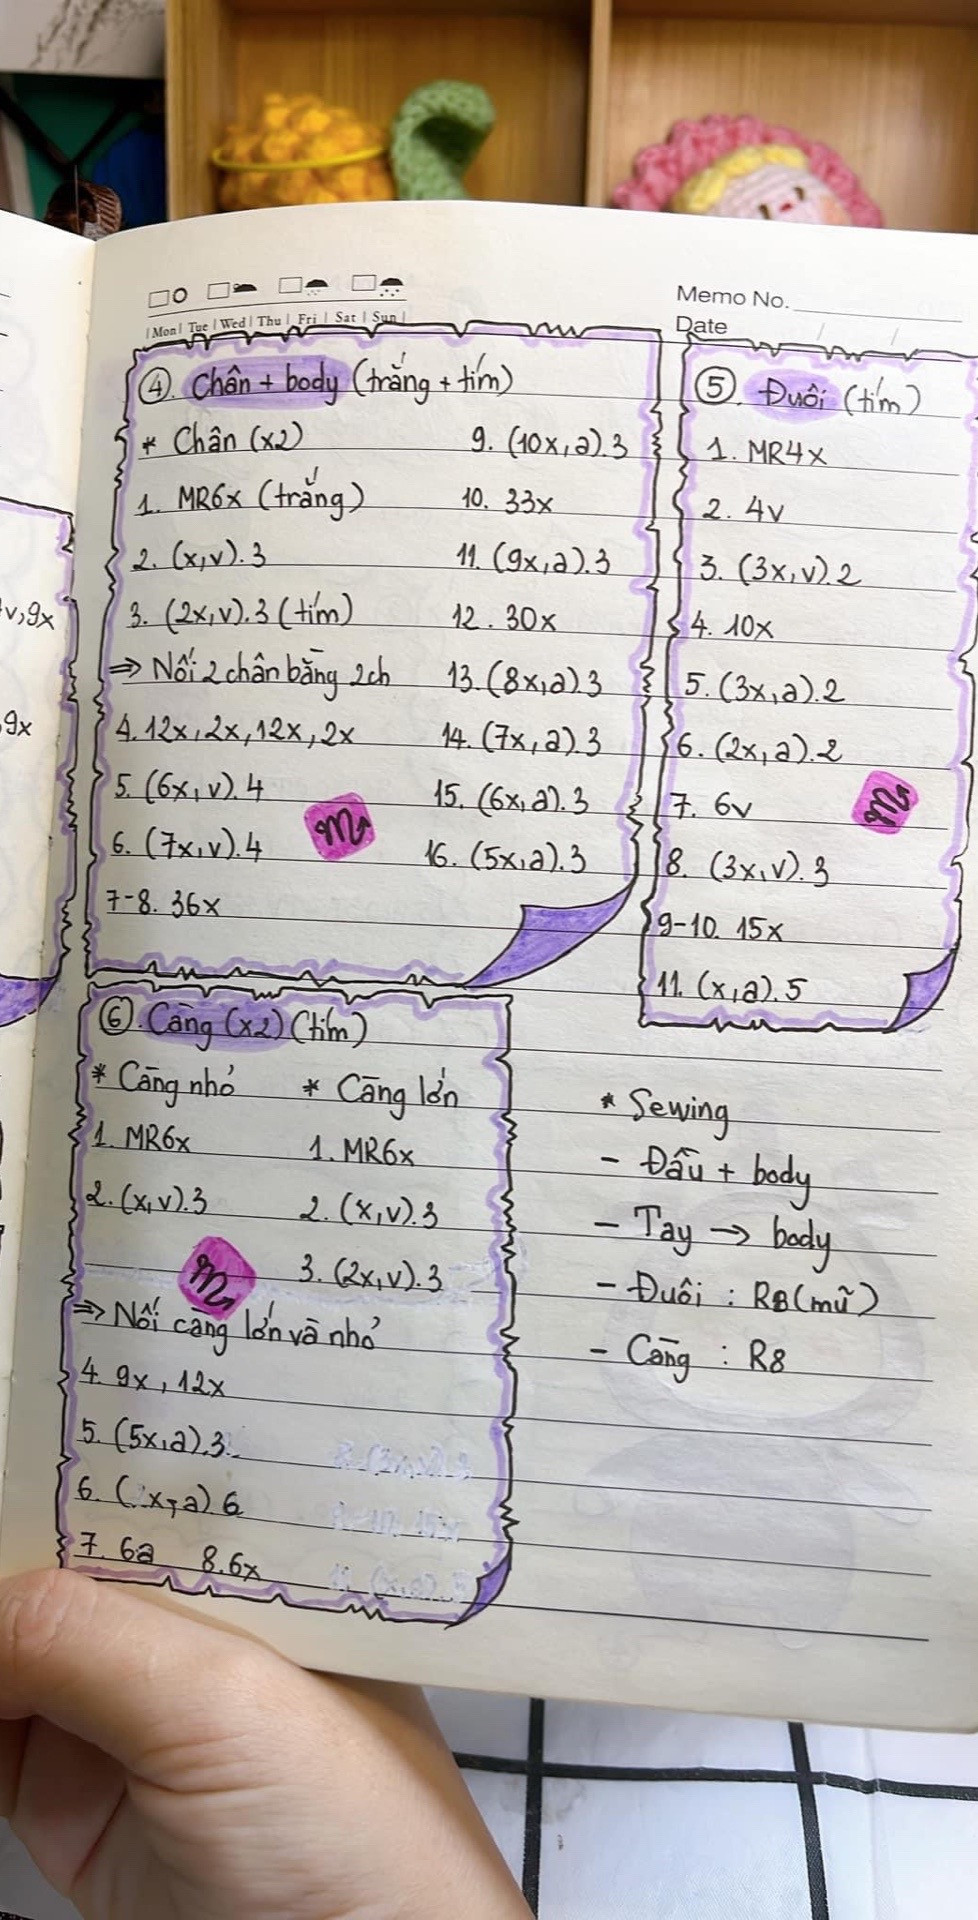 Mon | Tue | Wed | Thu | Fri | Sat | Sun
Memo No.
Date
v, 9x
9x
④. Chân + body (trắng + tím)
* Chân (x2)
1. MR6x (trắng)
2. (x,v).3
3. (2x,v).3 (tím)
=> Nối 2 chân bằng 2ch
4. 12x, 2x, 12x, 2x
5. (6x,v).4
6. (7x,v).4
7-8. 36x
9. (10x,a).3
10. 33x
11. (9x,a).3
12. 30x
13. (8x,a).3
14. (7x,a).3
15. (6x,a).3
16. (5x,a).3
⑤. Đuôi (tím)
1. MR4x
2. 4v
3. (3x,v).2
4. 10x
5. (3x,a).2
6. (2x,a).2
7. 6v
8. (3x,v).3
9-10. 15x
11. (x,a).5
⑥. Càng (x2) (tím)
* Càng nhỏ
1. MR6x
2. (x,v).3
* Càng lớn
1. MR6x
2. (x,v).3
3. (2x,v).3
=> Nối càng lớn và nhỏ
4. 9x, 12x
5. (5x,a).3
6. (x,a).6
7. 6a 8. 6x
* Sewing
- Đầu + body
- Tay → body
- Đuôi : R8 (mũ)
- Càng : R8